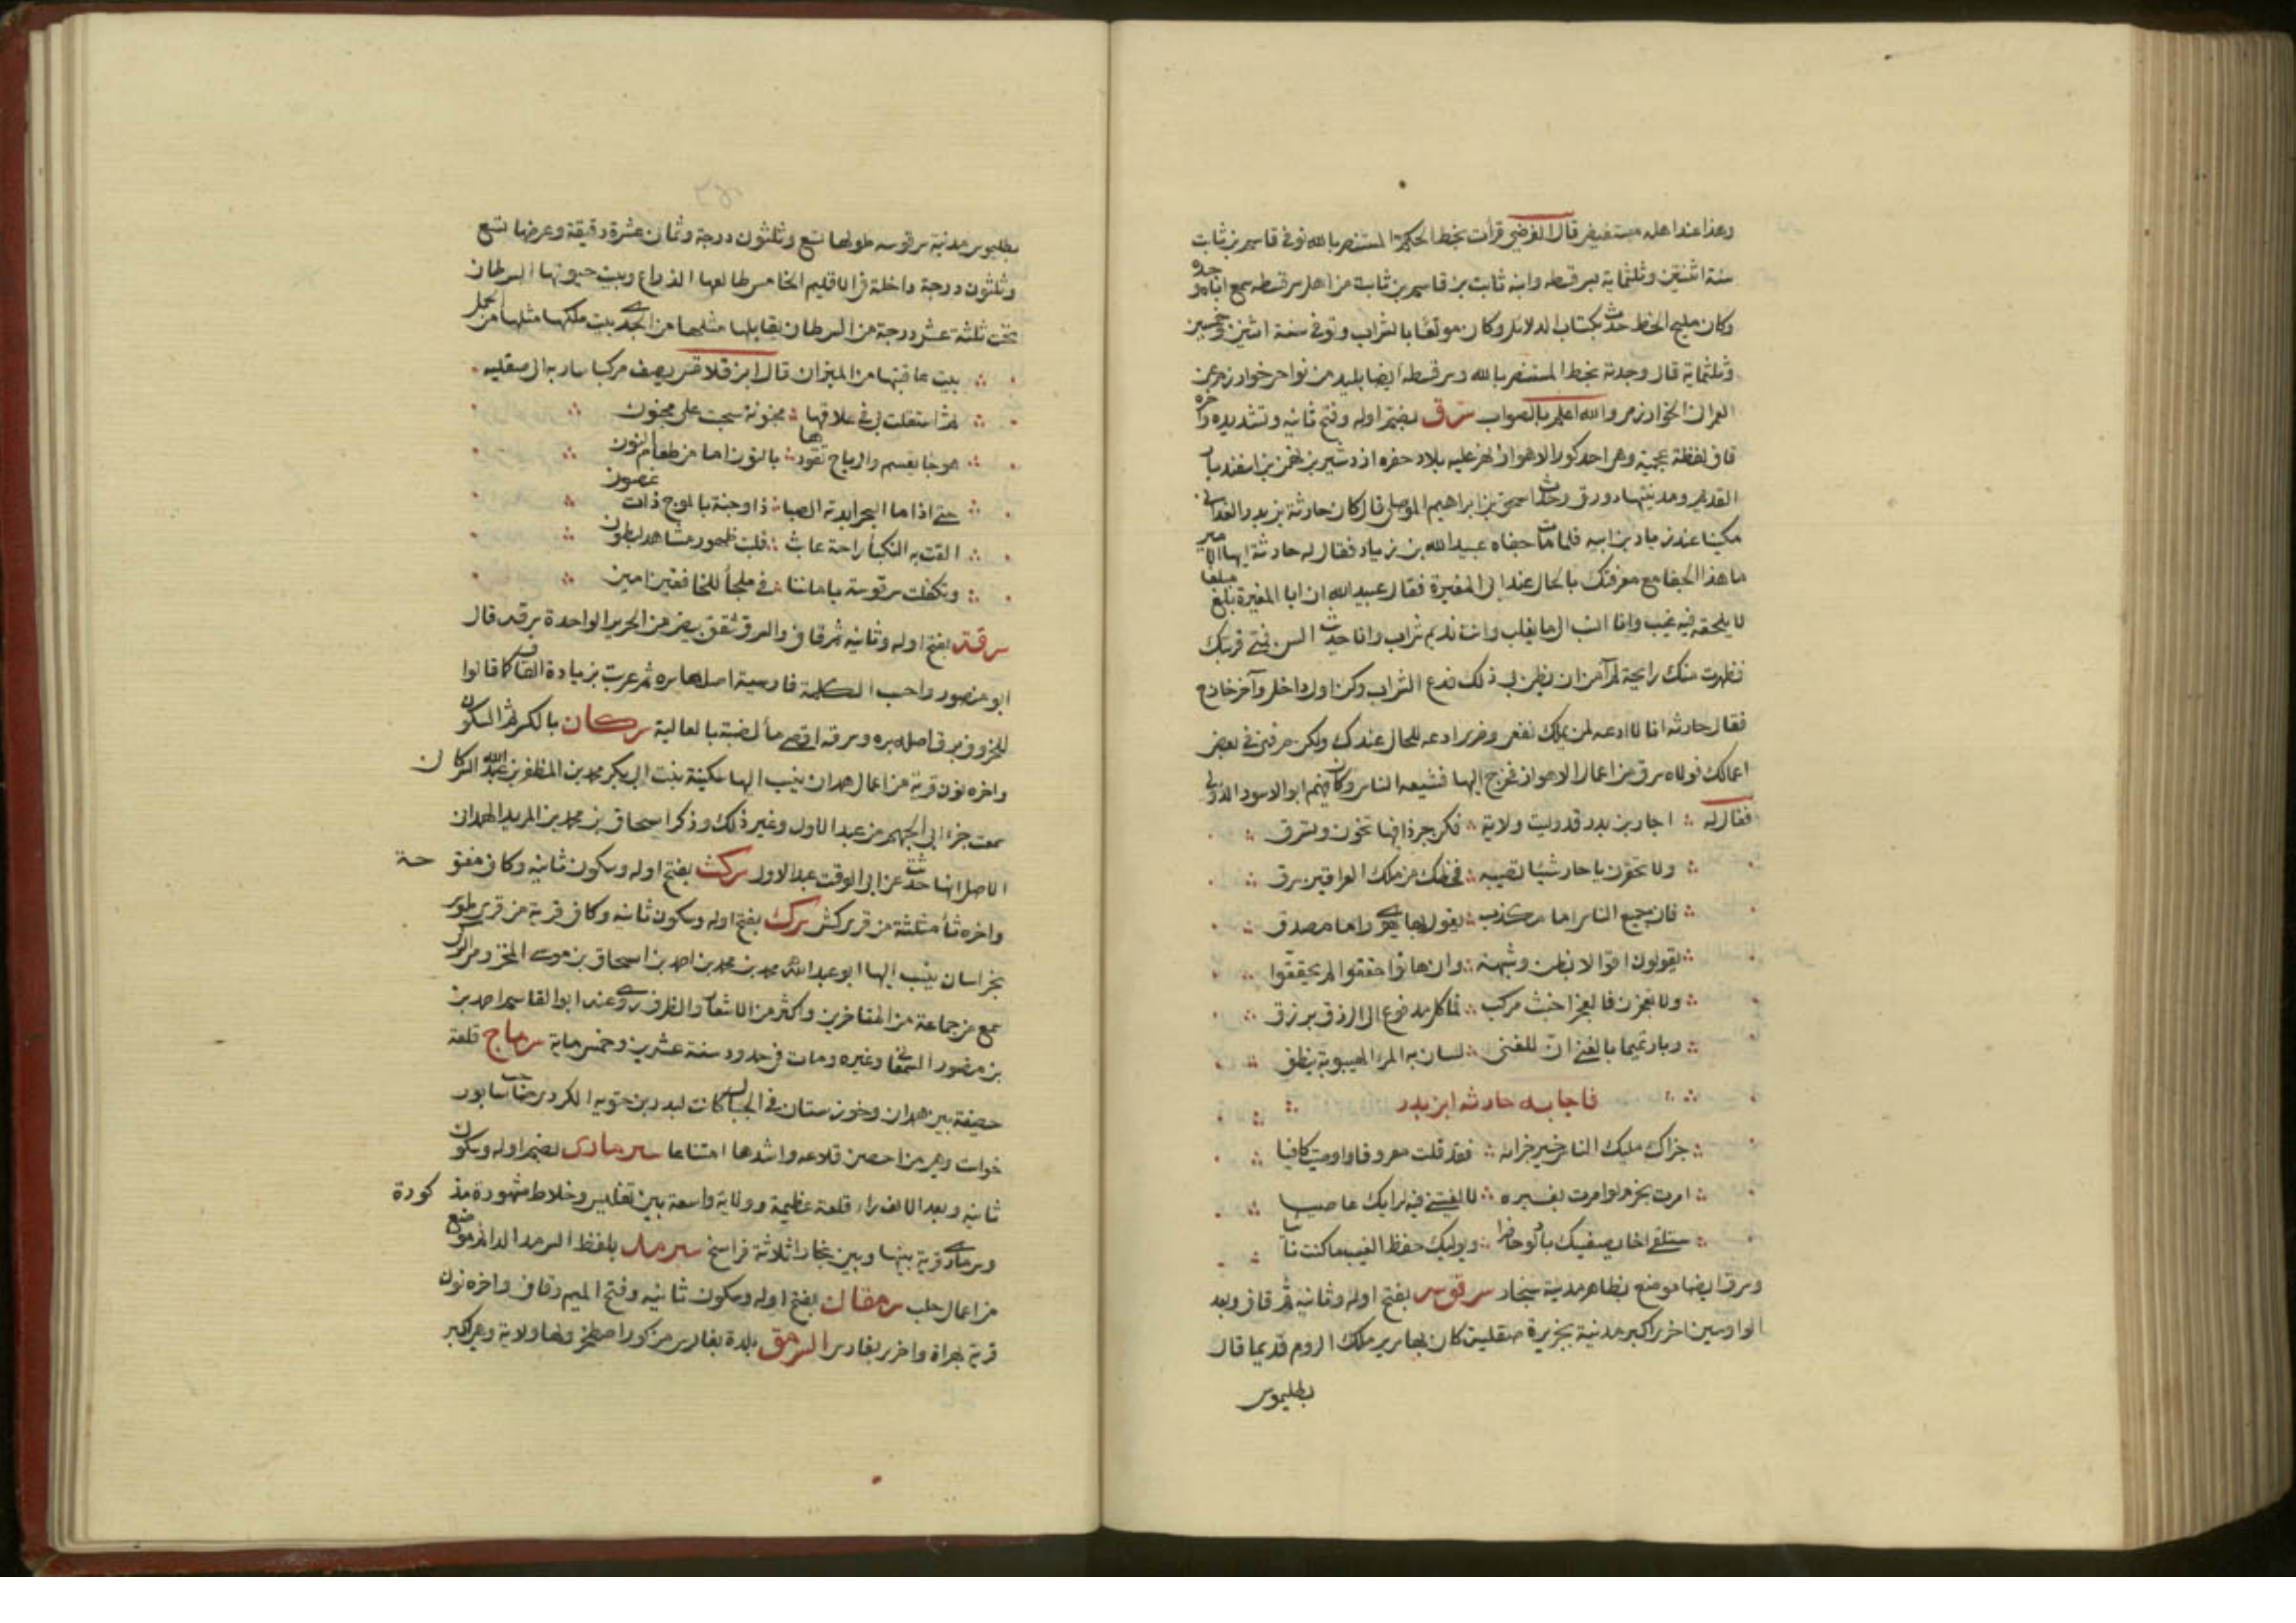 وهذا عند اهله مستفيض قال الفرضي قرأت بخط الحكم المستنصر بالله توفي قاسم بن ثابت
سنة اثنتين وثلثماية لسرقسطه وابنه ثابت بن قاسم بن ثابت من اهل سرقسطه سمع اباه وجده
وكان مليح الخط حدث بكتاب الدلائل وكان مولعا بالشراب وتوفي سنة اثنين وخمسين
وثلثماية قال وجدته بخط المستنصر بالله وسرقسطه ايضا بليد من نواحي خوارزم عن
العمراني الخوارزمي والله اعلم بالصواب سرق بضم اوله وفتح ثانيه وتشديده واخره
قاف لفظة عجمية وهي احدى كور الاهواز نهر عليه بلاد حفره اردشير بن بهمن بن اسفنديار
القديم ومدينتها دورق وحدث اسحق بن ابراهيم الموصلي قال كان حارثة بن بدر الغداني
مكينا عند زياد بن ابيه فلما مات جفاه عبيد الله بن زياد فقال له حارثة ايها الامير
ما هذا الجفا مع معرفتك بالحال عند ابي المغيرة فقال عبيد الله ان ابا المغيرة بلغ مبلغا
لا يلحقه فيه عيب وانا انسب الى ما يغلب وانت نديم شراب وانا حدث السن فمتى قربتك
فظهرت منك رايحة لم آمن ان يظن بي ذلك فدع الشراب وكن اول داخل وآخر خارج
فقال حارثه انا لا ادعه لمن يملك نفعي وضري ادعه للحال عندك ولكن صرفني في بعض
اعمالك فولاه سرق من اعمال الاهواز فخرج اليها فشيعه الناس وكان فيهم ابو الاسود الدؤلي
فقال له احار بن بدر قد وليت ولاية فكن جرذا فيها تخون وتسرق
ولا تحقرن يا حار شيئا تصيبه فحظك من ملك العراقين سرق
فان جميع الناس اما مكذب يقول بما يهوى واما مصدق
يقولون اقوالا بظن وشبهة وان هاتوا حققوا لم يحققوا
ولا تعجزن فالعجز اخبث مركب فما كل مدفوع الى الرزق يرزق
وبار تميما بالغنى ان للغنى لسان به المرء الهيوبة ينطق
فاجابه حارثه ابن بدر
جزاك مليك الناس خير جزايه فقد قلت معروفا واوصيت كافيا
امرت بحزم لو امرت بغيره لالفيتني فيه لرايك عاصيا
ستلقى اخا يصفيك بالود حاضرا ويوليك حفظ الغيب ما كنت نائيا
وسرق ايضا موضع بظاهر مدينة سنجار سرقوس بفتح اوله وثانيه ثم قاف وبعد
الواو سين اخرى اكبر مدينة بجزيرة صقلية كان بها سرير ملك الروم قديما قال
بطليموس
بطليموس مدينة سرقوسه طولها تسع وثلثون درجة وثمان عشرة دقيقة وعرضها تسع
وثلثون درجة داخلة في الاقليم الخامس طالعها الذراع وبيت حيوتها السرطان
تحت ثلثة عشر درجة من السرطان يقابلها مثلها من الجدي بيت ملكها مثلها من الحمل
بيت عاقبتها من الميزان قال ابن قلاقس يصف مركبا سار به الى صقليه
ثم استقلت بي في علاقها مجنونة سحبت على مجنون
هوجا تقسم والرياح تقودها بالنون انها من طعام النون
حتى اذا ما البحر ابدته الصبا ذا وجنة بالموج ذات غضون
القت به النكبأ راحة عابث قلبت ظهور مشاهد لبطون
وتكفلت سرقوسة باماننا في ملجأ للخافقين امين
سرقة بفتح اوله وثانيه ثم قاف والسرق شقق بيض من الحرير الواحدة سرقه قال
ابو منصور واحسب الكلمة فارسية اصلها سره ثم عربت بزيادة القاف كما قالوا
للخروف برق اصله بره وسرقه اقصى مأ لضبة بالعالية سركان بالكسر ثم السكون
واخره نون قرية من اعمال همدان ينسب اليها سكينة بنت ابي بكر محمد بن المظفر بن عبد الله السركان ن
سمعت جزء ابي الجهم من عبد الاول وغير ذلك وذكر اسحاق بن محمد بن المريد الهمداني
الاصل انها حدثت عن ابي الوقت عبد الاول سركث بفتح اوله وسكون ثانيه وكاف مفتو حة
واخره ثأ مثلثة من قرى كش سرك بفتح اوله وسكون ثانيه وكاف قرية من قرى طوس
بخراسان ينسب اليها ابو عبد الله محمد بن محمد بن احمد بن اسحاق بن موسى المخزومي السركي
سمع من جماعة من المتاخرين واكثر من الاشعار والظرف روى عنه ابو القاسم احمد بن
بن منصور السمعاني وغيره ومات في حدود سنة عشرين وخمس ماية سرماج قلعة
حصينة بين همدان وخوزستان في الجبال كانت لبدر بن حسنويه الكردي صاحب سابور
خواست وهي من احصن قلاعه واشدها امتناعا سرماري بضم اوله وسكون
ثانيه وبعد الالف راء قلعة عظيمة وولاية واسعة بين تفليس وخلاط مشهورة مذ كورة
وسرماري قرية بينها وبين بخارا ثلاثة فراسخ سرمد بلفظ السرمد الدائم موضع
من اعمال حلب سرمقان بفتح اوله وسكون ثانيه وفتح الميم وقاف واخره نون
قرية بهراة واخرى بفارس السرمق بلدة بفارس من كور اصطخر ولها ولاية وهي اكبر